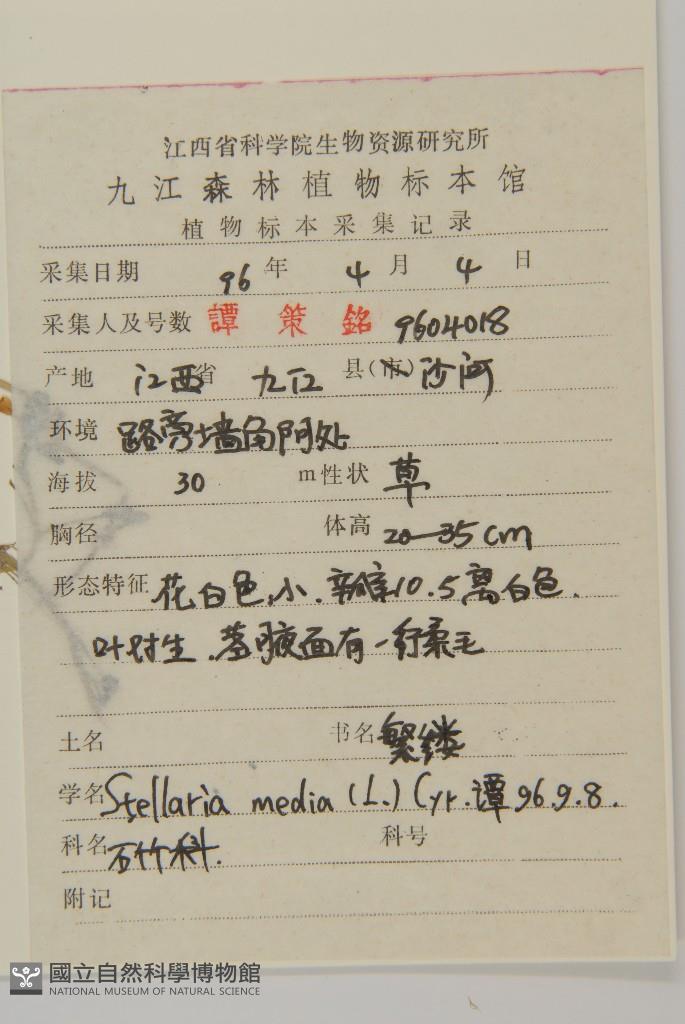 江西省科学院生物资源研究所
九江森林植物标本馆
植物标本采集记录
采集日期 96 年 4 月 4 日
采集人及号数 譚策銘 9604018
产地 江西省 九江 县(市) 沙河
环境 路旁墙角阴处
海拔 30 m 性状 草
胸径 体高 20—35cm
形态特征 花白色,小. 10.5离白色.
叶对生.茎腋面有一行柔毛
土名 书名 繁缕
学名 Stellaria media (L.) Cyr. 谭 96.9.8.
科名 石竹科. 科号
附记
國立自然科學博物館
NATIONAL MUSEUM OF NATURAL SCIENCE